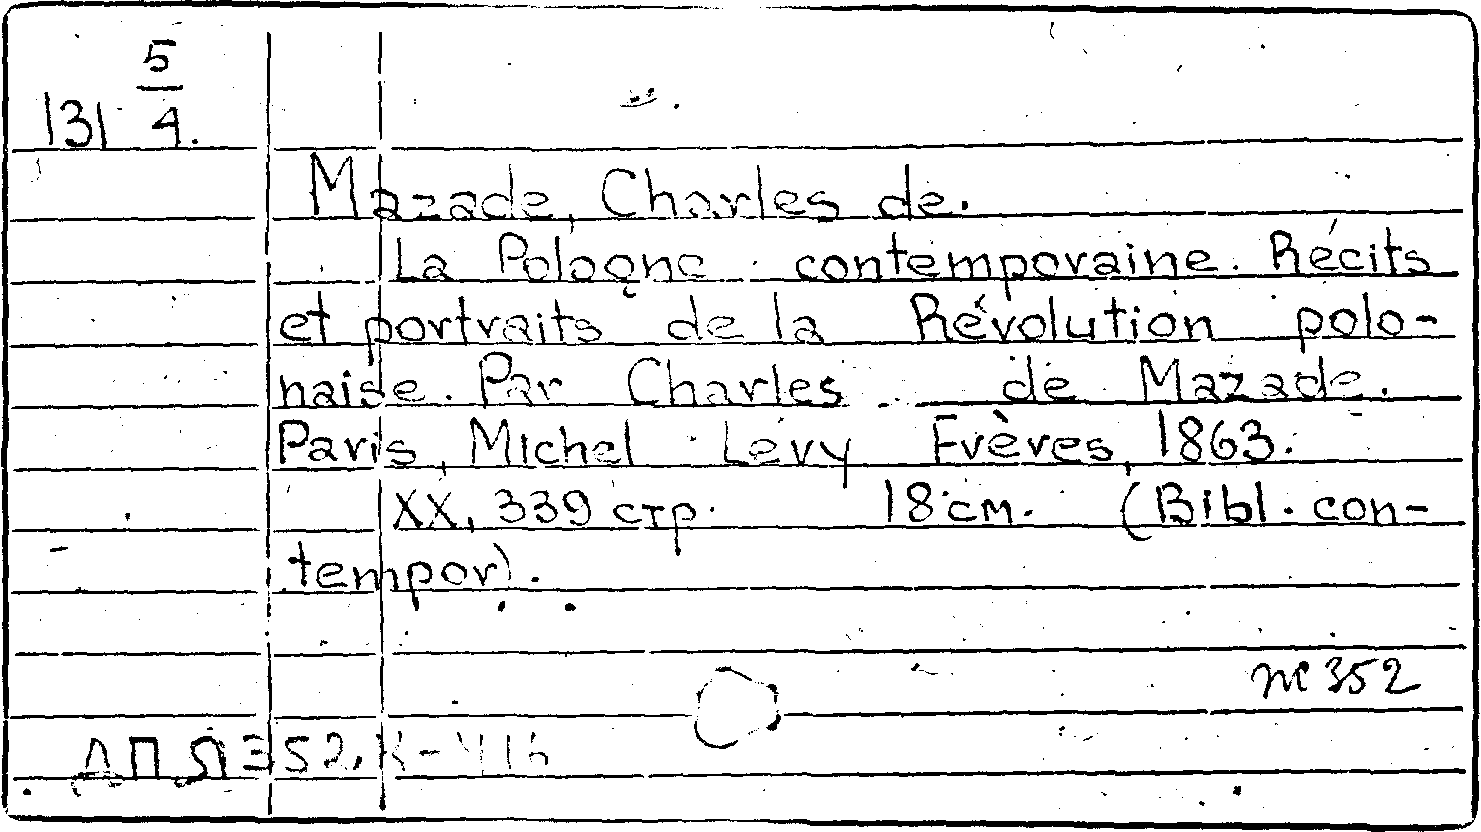 5
131 4.
Mazade, Charles de.
La Pologne contemporaine. Récits
et portraits de la Révolution polo-
naise. Par Charles de Mazade.
Paris, Michel Levy Frères, 1863.
XX, 339 стр. 18 см. (Bibl. con-
tempor).
352